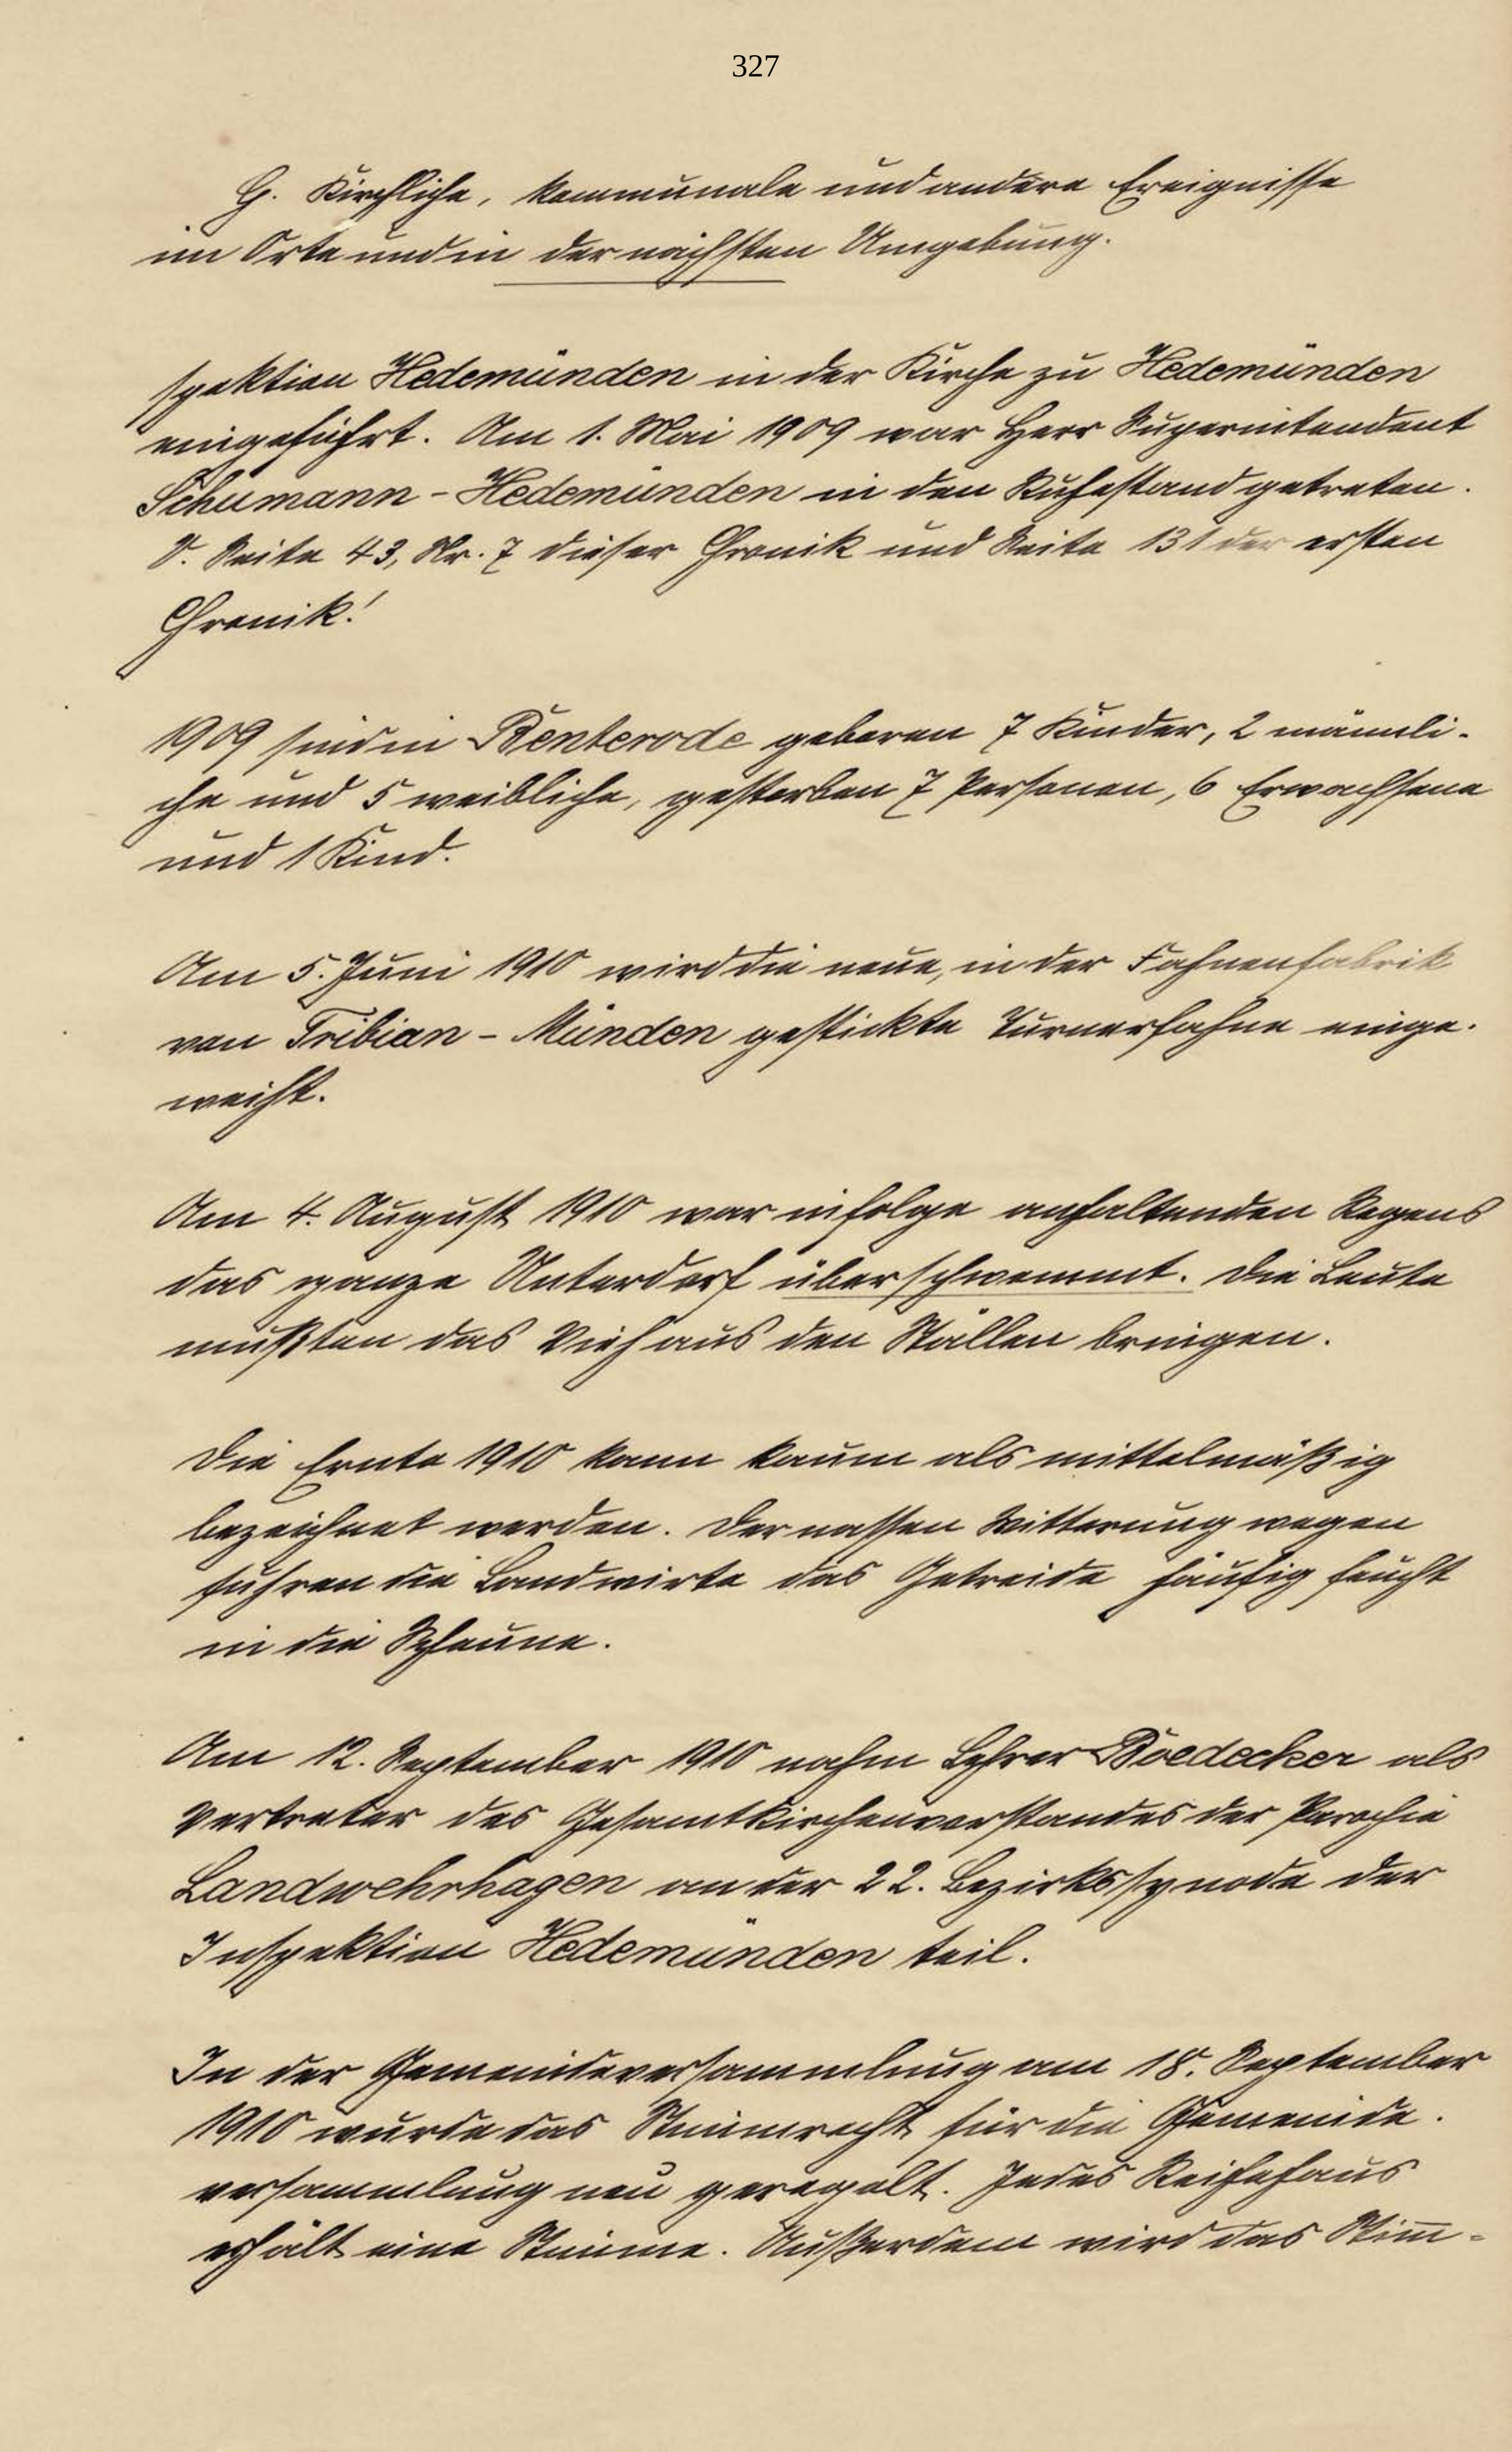 327
G. Kirchliche, kommunale und andere Ereignisse
im Orte und in der nächsten Umgebung.
spektion Hedemünden in der Kirche zu Hedemünden
eingeführt. Am 1. Mai 1909 war Herr Superintendent
Schumann - Hedemünden in den Ruhestand getreten.
S. Seite 43, Nr. 7 dieser Chronik und Seite 131 der ersten
Chronik!
1909 sind in Benterode geboren 7 Kinder, 2 männli-
che und 5 weibliche, gestorben 7 Personen, 6 Erwachsene
und 1 Kind.
Am 5. Juni 1910 wird die neue, in der Fahnenfabrik
von Tribian - Münden gestickte Turnerfahne einge-
weiht.
Am 4. August 1910 war infolge anhaltenden Regens
das ganze Unterdorf überschwemmt. Die Leute
mußten das Vieh aus den Ställen bringen.
Die Ernte 1910 kann kaum als mittelmäßig
bezeichnet werden. Der nassen Witterung wegen
fuhren die Landwirte das Getreide häufig feucht
in die Scheune.
Am 12. September 1910 nahm Lehrer Boedecker als
Vertreter des Gesamtkirchenvorstandes der Parochie
Landwehrhagen an der 22. Bezirkssynode der
Inspektion Hedemünden teil.
In der Gemeindeversammlung am 18. September
1910 wurde das Stimmrecht für die Gemeinde-
versammlung neu geregelt. Jedes Reihehaus
erhält eine Stimme. Außerdem wird das Stim̅-